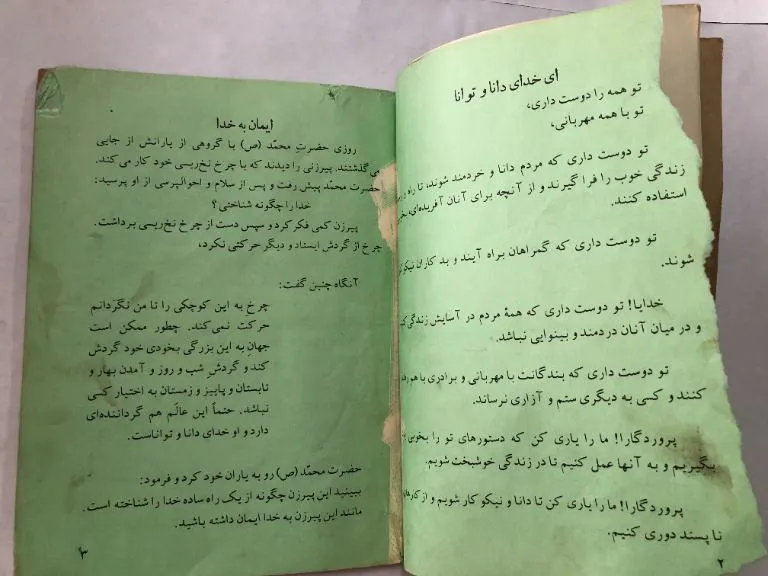 ای خدای دانا و توانا
تو همه را دوست داری،
تو با همه مهربانی،
تو دوست داری که مردم دانا و خردمند شوند، تا راه
زندگی خوب را فرا گیرند و از آنچه برای آنان آفریده‌ای،
استفاده کنند.
تو دوست داری که گمراهان براه آیند و بد کاران
شوند.
خدایا! تو دوست داری که همهٔ مردم در آسایش زندگی
و در میان آنان دردمند و بینوایی نباشد.
تو دوست داری که بندگانت با مهربانی و برادری با هم
کنند و کسی به دیگری ستم و آزاری نرساند.
پروردگارا! ما را یاری کن که دستورهای تو را بخوبی
بگیریم و به آنها عمل کنیم تا در زندگی خوشبخت شویم.
پروردگارا! ما را یاری کن تا دانا و نیکو کار شویم و از کارهای
نا پسند دوری کنیم.
۲
ایمان به خدا
روزی حضرتِ محمّد (ص) با گروهی از یارانش از جایی
می گذشتند. پیرزنی را دیدند که با چرخ نخ‌ریسی خود کار می کند.
حضرت محمّد پیش رفت و پس از سلام و احوالپرسی از او پرسید:
خدا را چگونه شناختی؟
پیرزن کمی فکر کرد و سپس دست از چرخ نخ‌ریسی برداشت.
چرخ از گردش ایستاد و دیگر حرکتی نکرد،
آنگاه چنین گفت:
چرخ به این کوچکی را تا من نگردانم
حرکت نمی‌کند. چطور ممکن است
جهانِ به این بزرگی بخودی خود گردش
کند و گردشِ شب و روز و آمدن بهار و
تابستان و پاییز و زمستان به اختیار کسی
نباشد. حتماً این عالَم هم گرداننده‌ای
دارد و او خدای دانا و تواناست.
حضرت محمّد (ص) رو به یاران خود کرد و فرمود:
ببینید این پیرزن چگونه از یک راه ساده خدا را شناخته است.
مانند این پیرزن به خدا ایمان داشته باشید.
۳